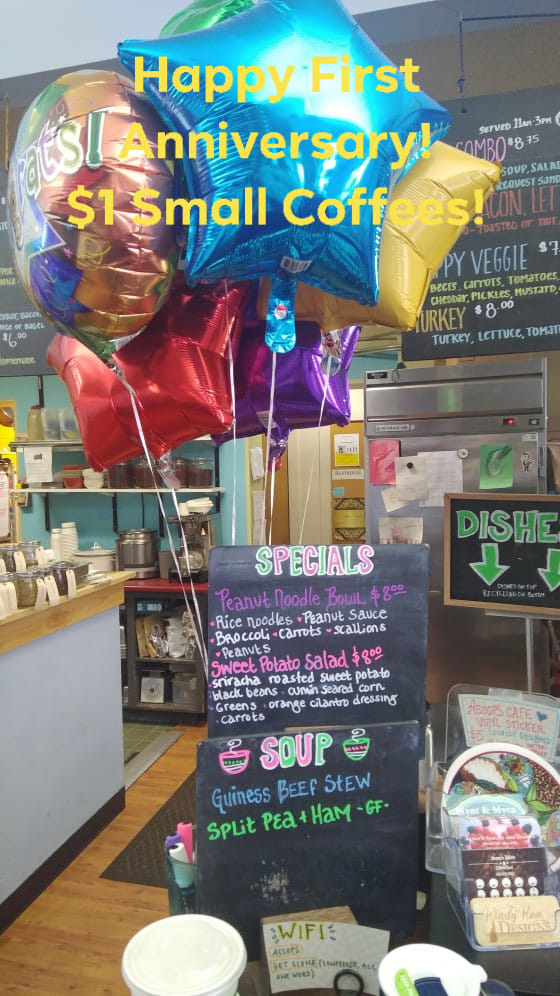 Happy First
Anniversary!
$1 Small Coffees!
SERVED 11am-3pm
COMBO $8.75
SOUP, SALAD
BACON, LET
TOASTED OR NOT
VEGGIE $7
BEETS, CARROTS, TOMATOES,
CHEDDAR, PICKLES, MUSTARD,
TURKEY $8.00
TURKEY, LETTUCE, TOMAT
$6.00
Homemade
RESTROOMS
DISHE
DISHES ON TOP
RECYCLING ON BOTTOM
SPECIALS
Peanut Noodle Bowl $8.00
Rice noodles Peanut Sauce
Broccoli carrots scallions
Peanuts
Sweet Potato Salad $8.00
sriracha roasted sweet potato
black beans cumin seared corn
Greens orange cilantro dressing
carrots
SOUP
Guiness Beef Stew
Split Pea + Ham -GF-
AESOPS CAFE
VINYL STICKER
$5 LOCALLY DESIGNED
Mynt & Myca
Windy Hom
DESIGNS
WIFI
AESOPS
GET SCONE (LOWERCASE, ALL
ONE WORD)